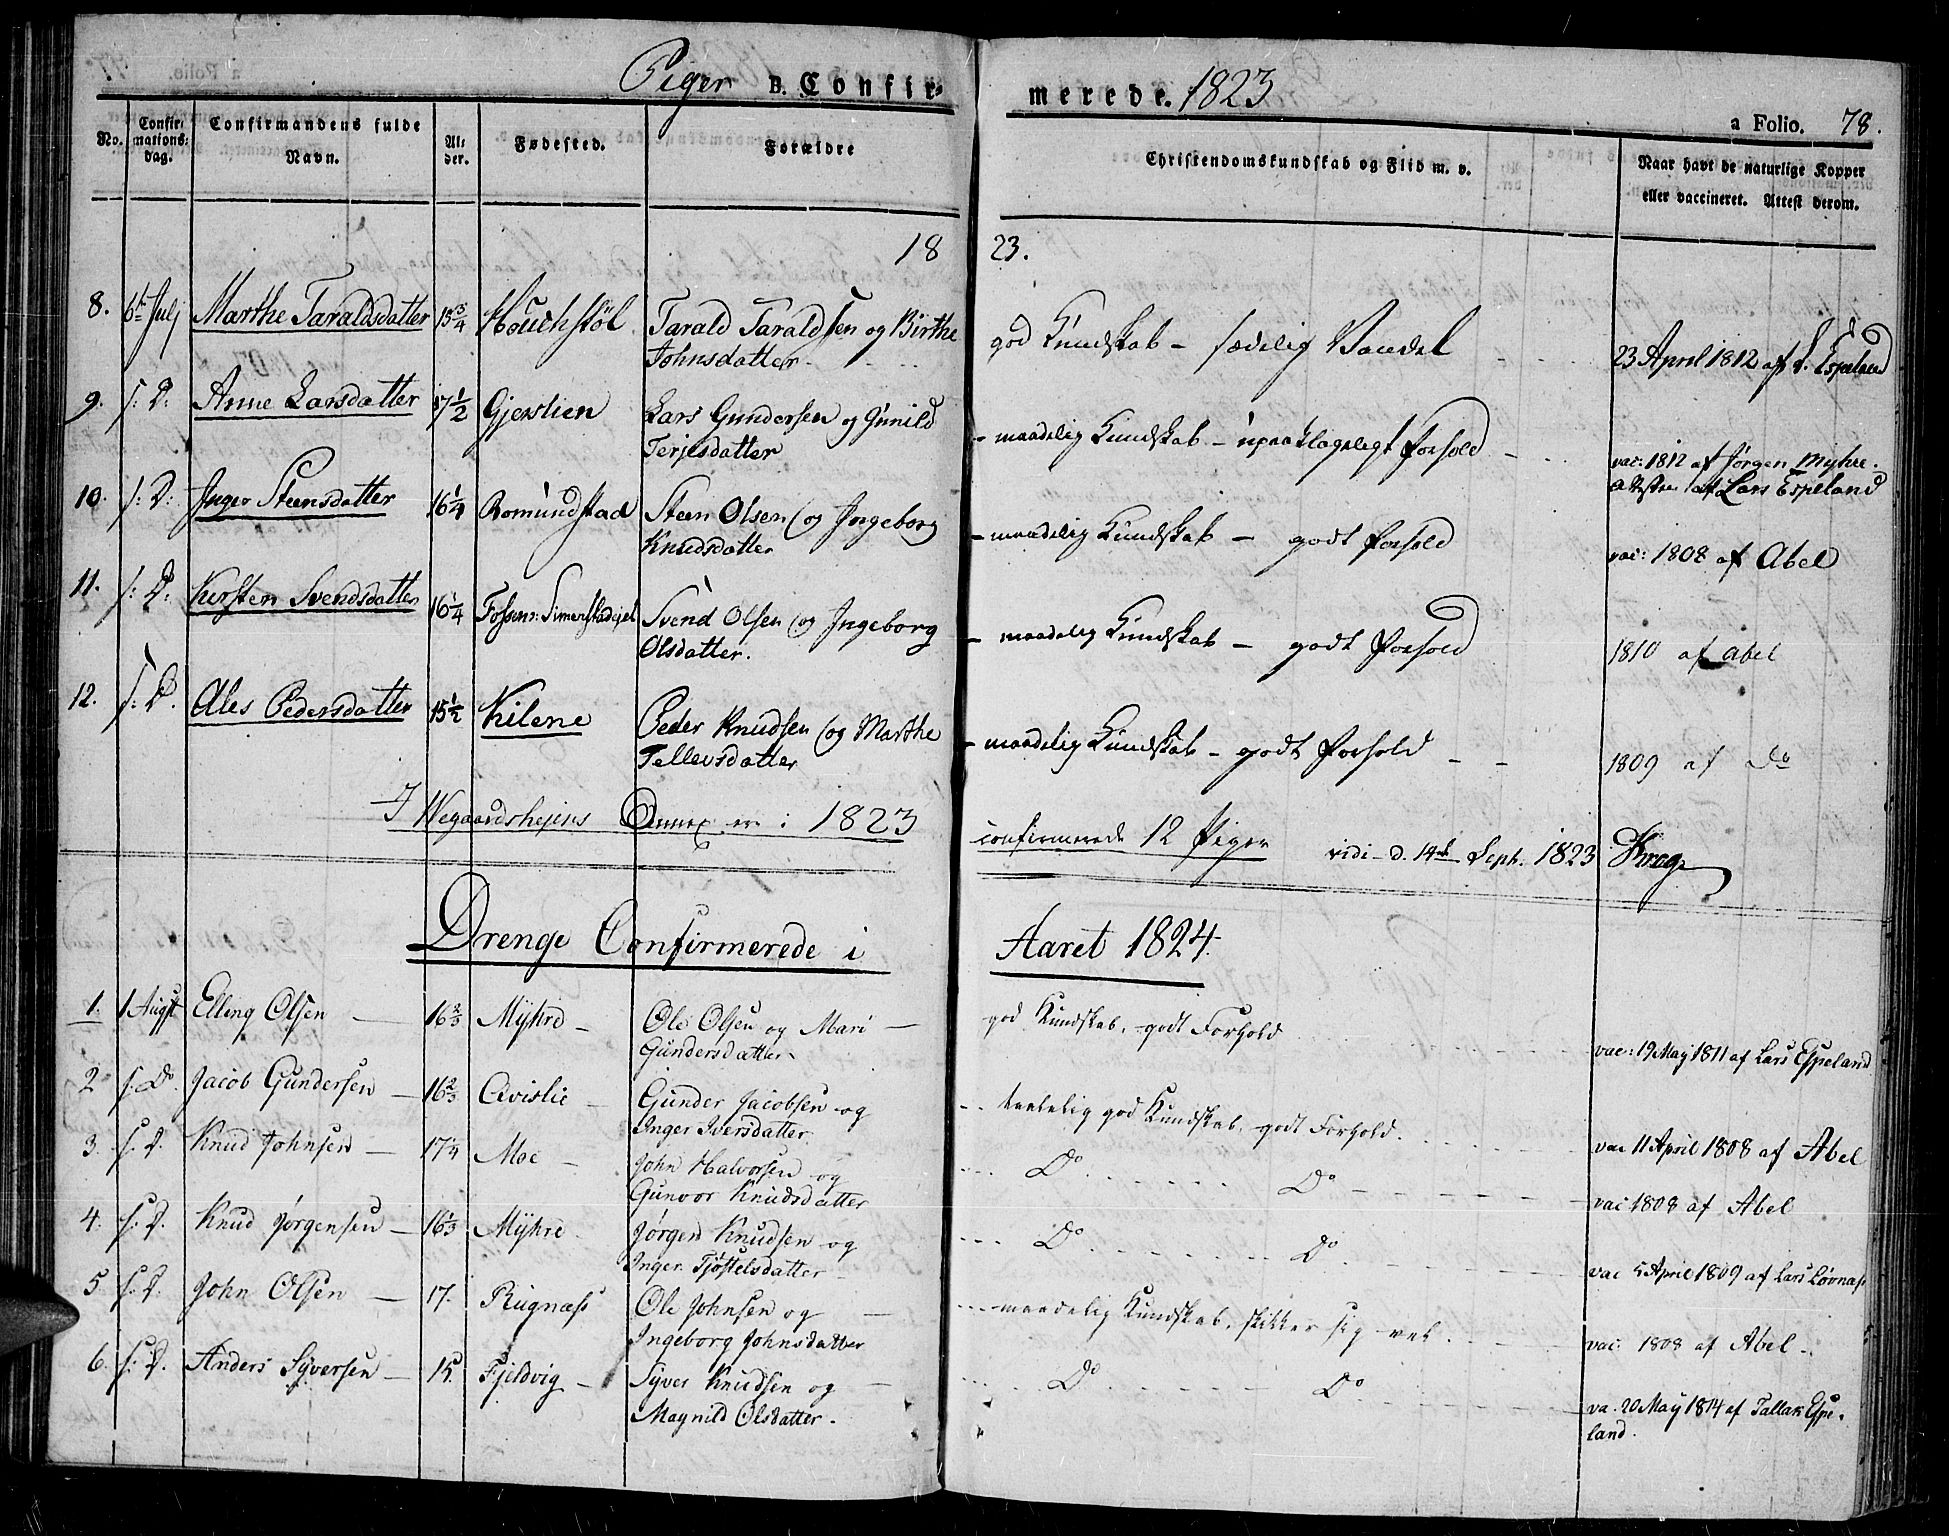 Piger B. Confir-
merede. 1823
a Folio. 78.
No.
Confir-
mations-
dag.
Confirmandens fulde
Navn.
Al-
der.
Fødested.
Forældre
Christendomskundskab og Flid m. v.
Naar havt de naturlige Kopper
eller vaccineret. Attest derom.
18 23.
8. 6te Julj Marthe Taraldsdatter 15 3/4 Houchstøl Tarald Taraldsen og Birthe
Johnsdatter
god Kundskab - sædelig Vandel 23 April 1812 af L. Espeland
9. s: D: Anne Larsdatter 17 1/2 Gjerstien Lars Gundersen og Gunild
Terjesdatter
- maadelig Kundskab - upaaklageligt Forhold - vac: 1812 af Jørgen Myhre.
af Lars Espeland
10. s: D: Inger Steensdatter 16 1/4 Romundstad Steen Olsen (og Ingeborg
Knudsdatter
- maadelig Kundskab - godt Forhold vac: 1808 af Abel
11. s: D: Kirsten Svendsdatter 16 1/4 Svend Olsen (og Ingeborg
Olsdatter.
- maadelig Kundskab - godt Forhold 1810 af Abel
12. s: D. Ales Pedersdatter 15 1/2 Kilene Peder Knudsen (og Marthe
Tellevsdatter
- maadelig Kundskab - godt Forhold - - 1809 af Do
I Wegaardshejens Annex er i 1823
confirmerede 12 Piger vidi d. 14de Septb. 1823 Krog
Drenge Confirmerede i Aaret 1824.
1. 1 Augst Elling Olsen 16 2/3 Myhre - Ole Olsen og Mari
Gundersdatter
god Kundskab, godt Forhold vac: 19 May 1811 af Lars Espeland
2 s. Do. Jacob Gundersen 16 2/3 Avislie Gunder Jacobsen og
Inger Iversdatter
temelig god Kundskab, godt Forhold. vac 11 April 1808 af Abel
3. s. D. Knud Johnsen 17 1/4 Moe - John Halvorsen og
Gunvor Knudsdatter
Do Do vac 1808 af Abel
4. s. D. Knud Jørgensen 16 1/3 Myhre Jørgen Knudsen og
Inger Tjøstelsdatter
Do Do vac 5 April 1809 af Lars Løvnæs
5 s. D. John Olsen 17. Rugnæss Ole Johnsen og
Ingeborg Johnsdatter
maadelig Kundskab, skikker sig vel. vac: 1808 af Abel -
6. s: D. Anders Syversen 15 Fjeldvig Syver Knudsen og
Magnild Olsdatter.
Do Do va. 20 May 1814 af Tallak Espe-
land.